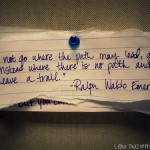 not go where the path may lead, g
instead where there is no path and
leave a trail."
-Ralph Waldo Emer
but you can